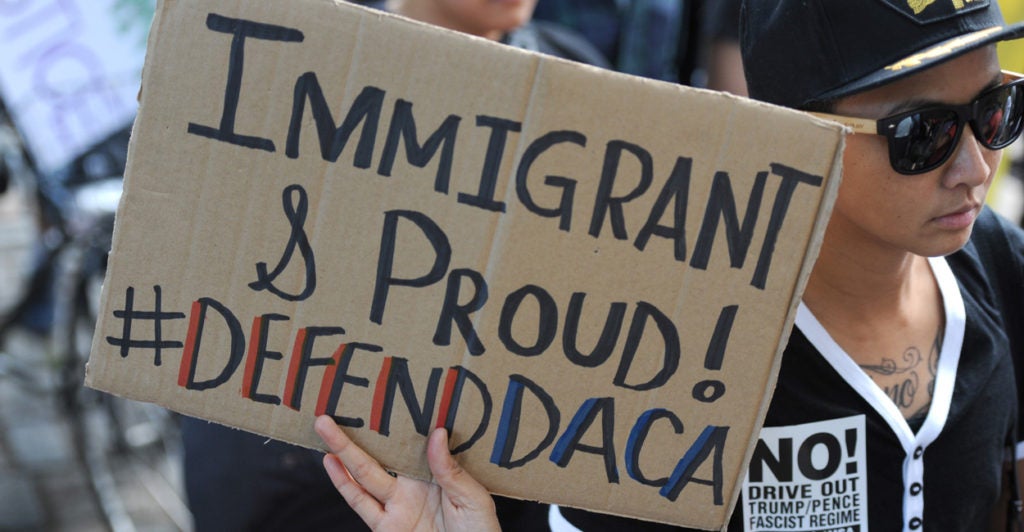 IMMIGRANT
& PROUD!
#DEFENDDACA
NO!
DRIVE OUT
TRUMP/PENCE
FASCIST REGIME